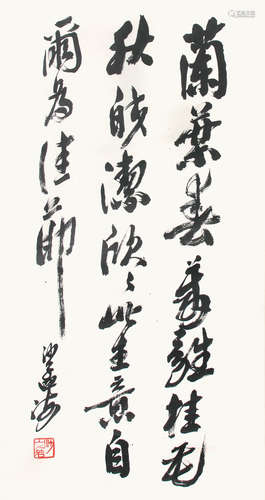 蘭葉春葳蕤桂花
秋皎潔欣〻此生意自
爾為佳節
沙孟海